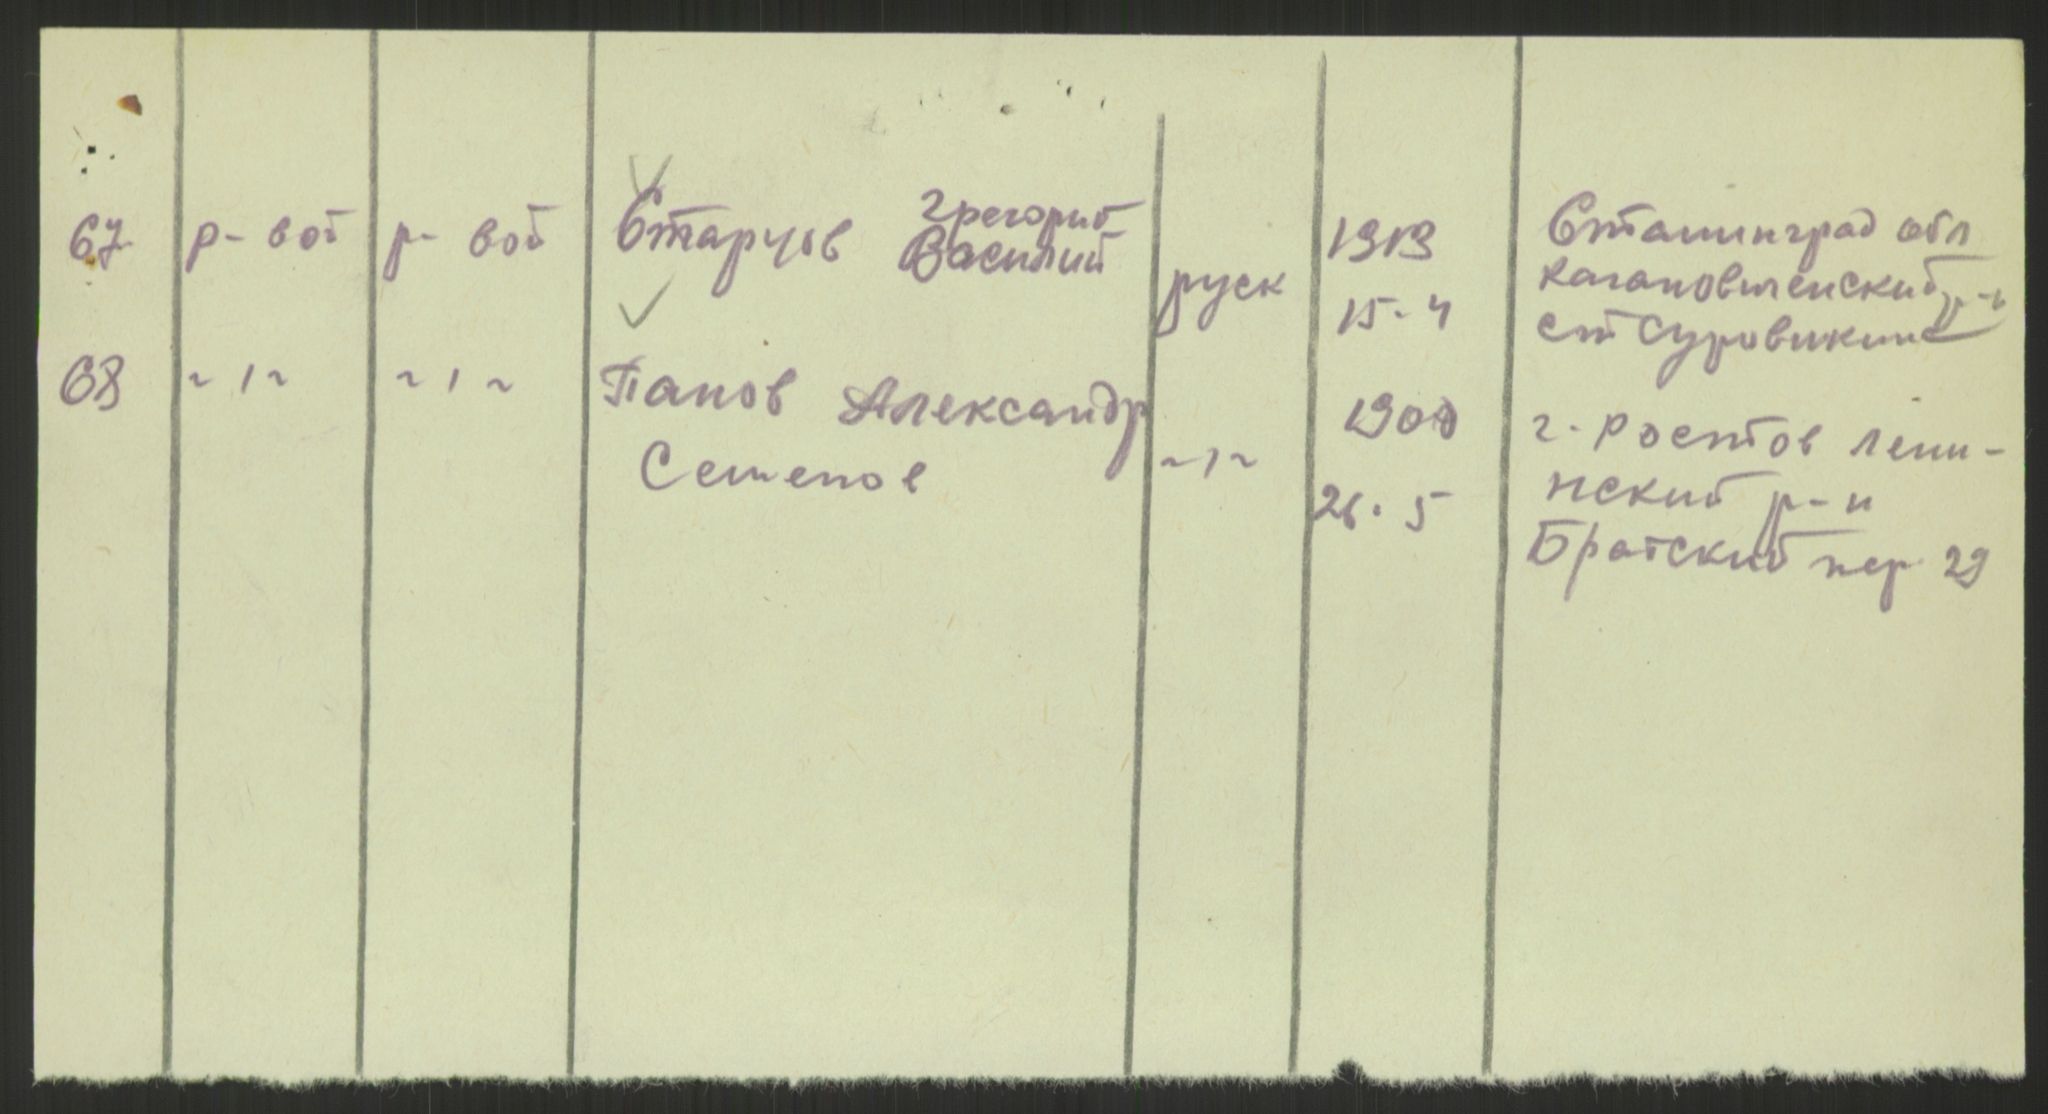 67 р- вой р- вой Старцов Грегорий Василий руск 1919 15-4 Сталинград обл
Кагановиченский р-н
ст Суровикине
68 ~ı~ ~ı~ Панов Александр Семенов ~ı~ 1900 26.5 г. Ростов Лени-
нский р-н
Братский пер 29